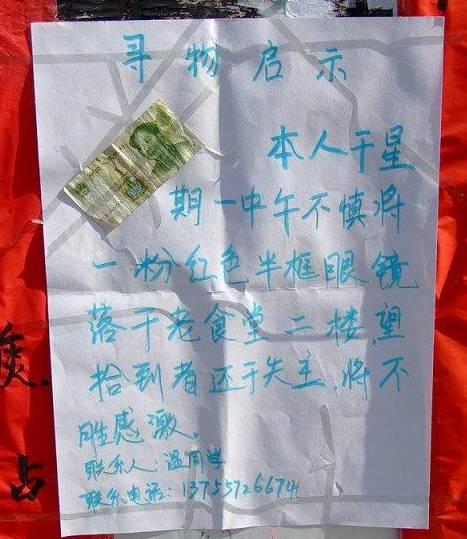 寻物启示
本人于星
期一中午不慎将
一粉红色半框眼镜
落于老食堂二楼,望
拾到者还于失主,将不
胜感激.
联系人:温同学
联系电话:13755726674
占